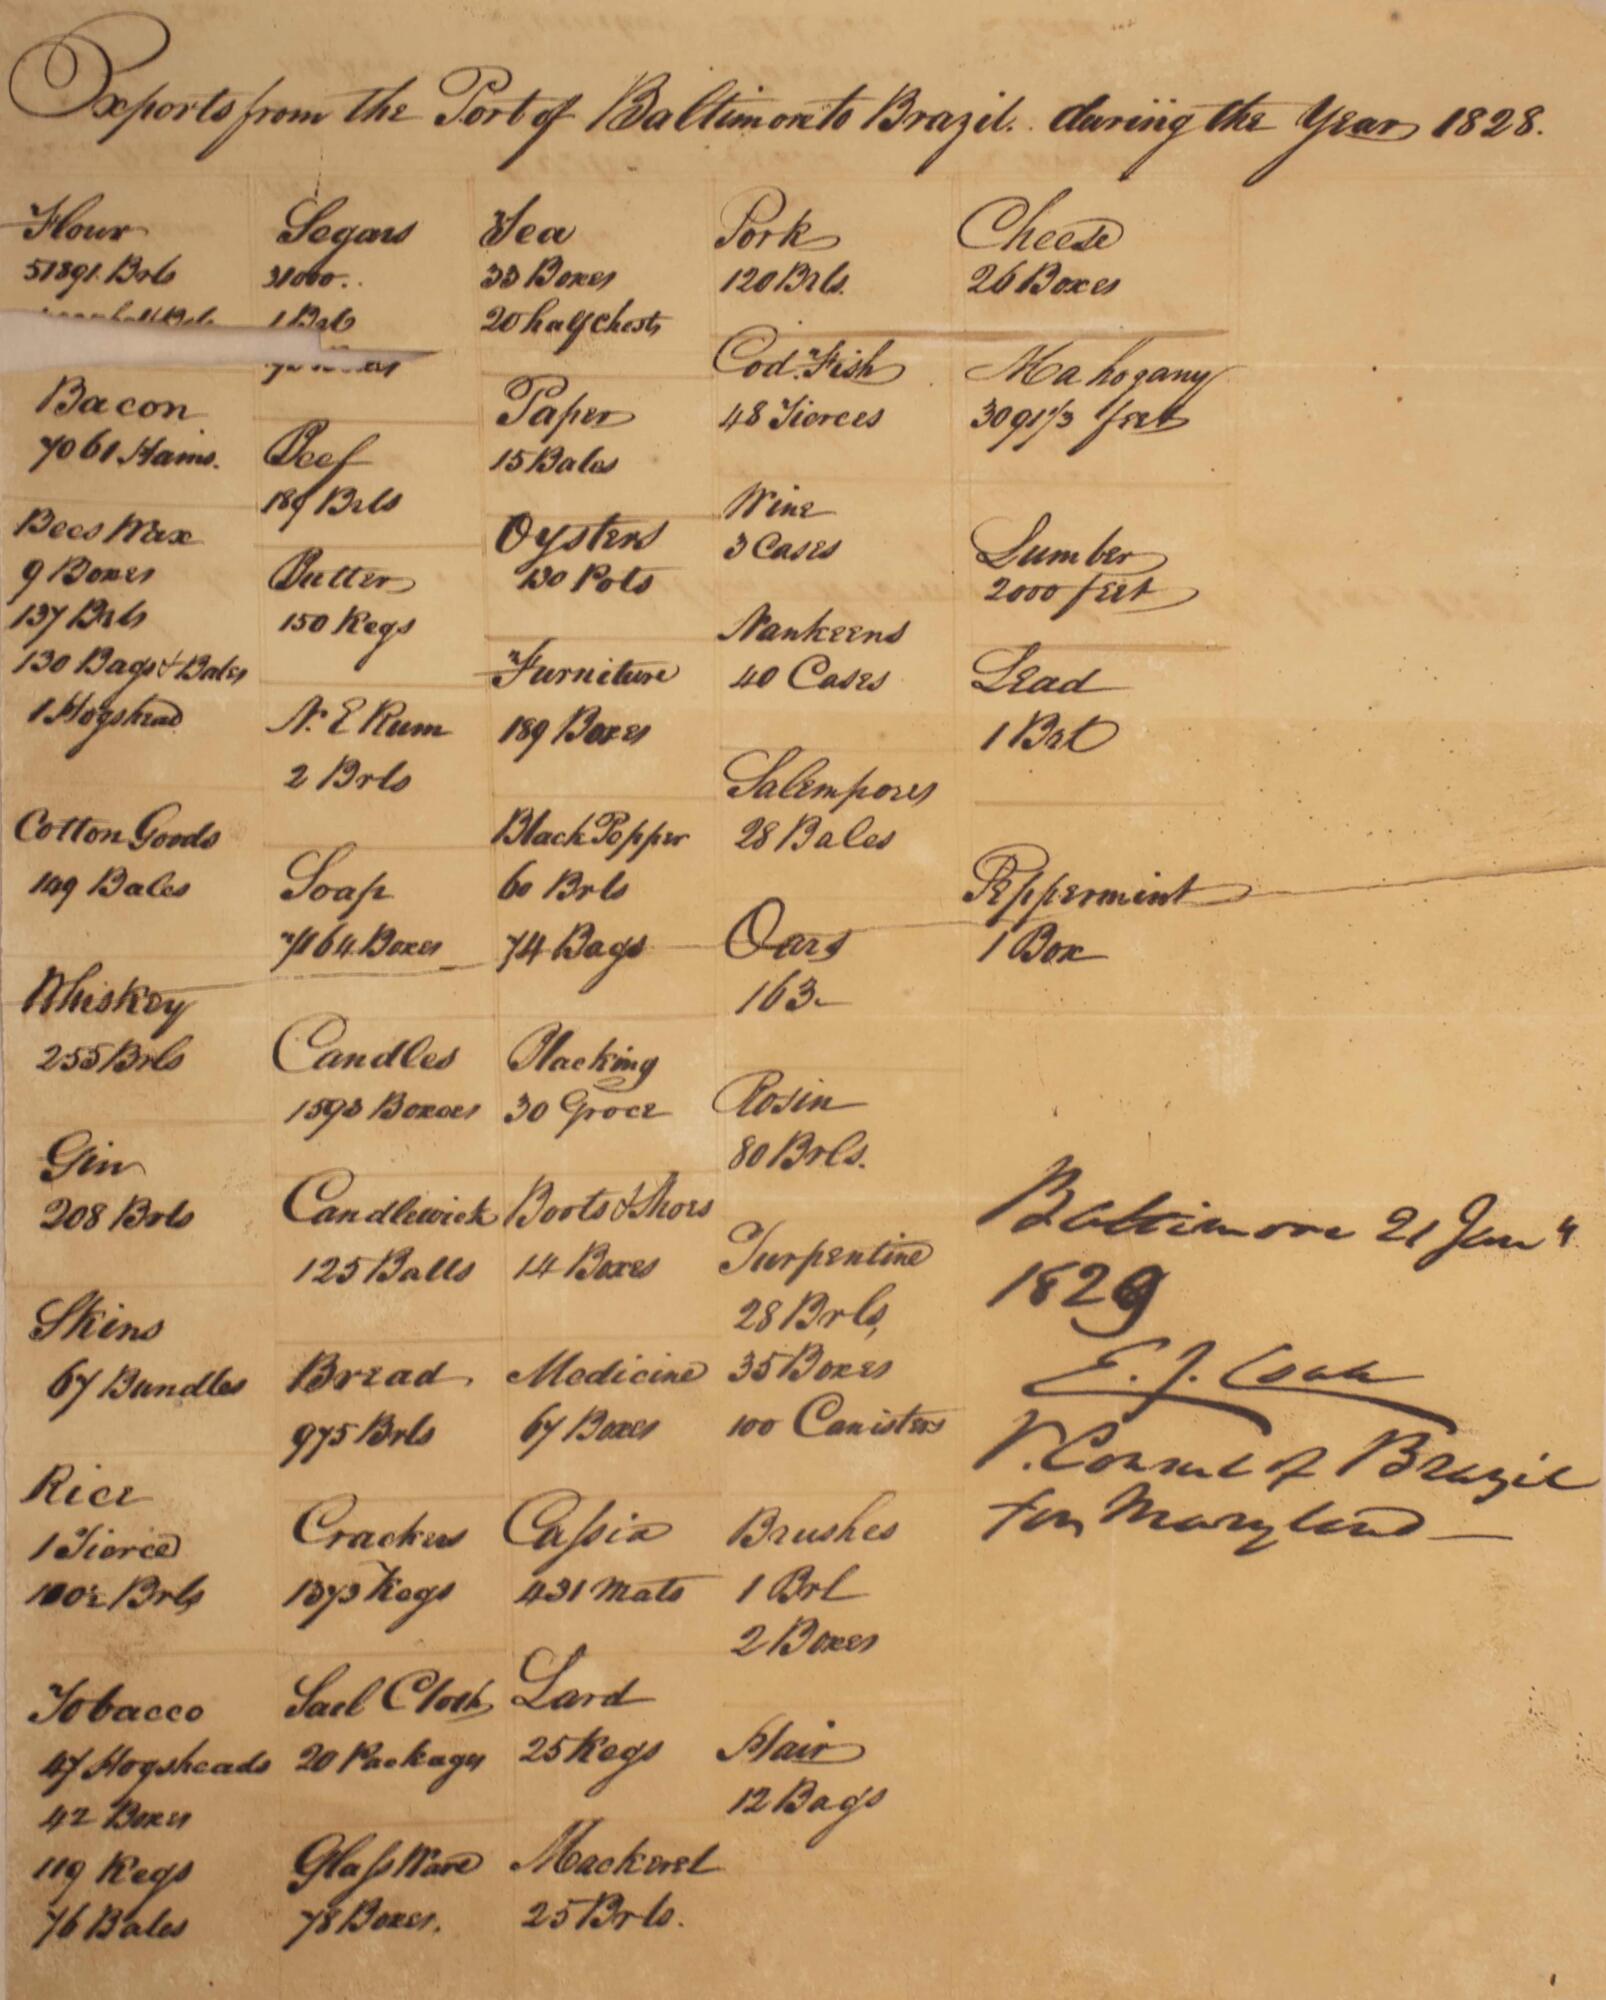 Exports from the Port of Baltimore to Brazil. during the Year 1828.
Flour
51891. Brls
half Brls
Bacon
7061 Hams.
Bees Wax
9 Boxes
137 Brls
130 Bags & Bales
1 Hogshead
Cotton Goods
149 Bales
Whiskey
255 Brls
Gin
208 Brls
Skins
67 Bundles
Rice
1 Tierce
Brls
Tobacco
47 Hogsheads
42 Boxes
119 Kegs
76 Bales
Segars
31000..
1 Brl
Boxes
Beef
189 Brls
Butter
150 Kegs
N. E Rum
2 Brls
Soap
Boxes
Candles
1593 Boxes
Candlewick
125 Balls
Bread
975 Brls
Crackers
1373 Kegs
Sail Cloth
20 Packages
Glass Ware
78 Boxes.
Tea
33 Boxes
20 half Chests
Paper
15 Bales
Oysters
130 Pots
Furniture
189 Boxes
Black Pepper
60 Brls
74 Bags
Blacking
30 Groce
Boots & Shoes
14 Boxes
Medicine
67 Boxes
Cassia
431 Mats
Lard
25 Kegs
Mackerel
25 Brls.
Pork
120 Brls.
Cod. Fish
48 Tierces
Wine
3 Cases
Nankeens
40 Cases
Salempores
28 Bales
Oars
163.
Rosin
80 Brls.
Turpentine
28 Brls,
35 Boxes
100 Canisters
Brushes
1 Brl
2 Boxes
Hair
12 Bags
Cheese
26 Boxes
Mahogany
3091⅓ feet
Lumber
2000 feet
Lead
1 Brl
Peppermint
1 Box
Baltimore 21 Jany
1829
E. J.
V. Consul of Brazil
for Maryland